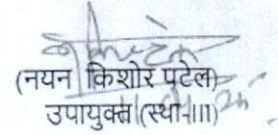 (नयन किशोर पटेल)
उपायुक्त (स्था-III)